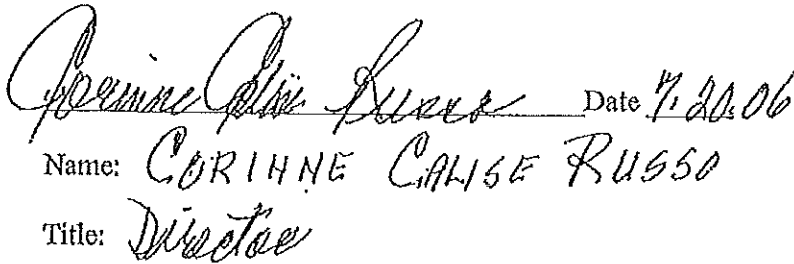 Corinne Calise Russo Date 7.20.06
Name: CORINNE CALISE RUSSO
Title: Director